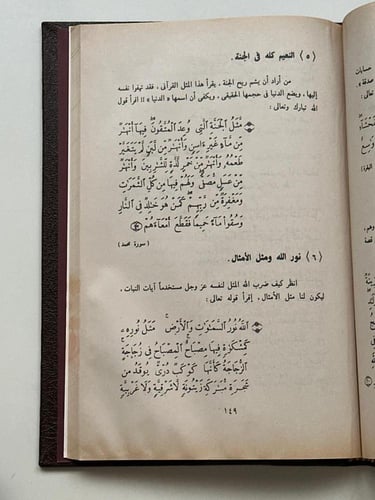 (٥) النعيم كله فى الجنة .
من أراد أن يشم ريح الجنة ، يقرأ هذا المثل القرآنى ، فقد تهفو نفسه
إليها ، ويضع الدنيا فى حجمها الحقيقى ، ويكفى أن اسمها « دنيا » !! اقرأ قول
الله تبارك وتعالى :
﴿ مَّثَلُ الْجَنَّةِ الَّتِي وُعِدَ الْمُتَّقُونَ فِيهَا أَنْهَارٌ
مِّن مَّاءٍ غَيْرِ ءَاسِنٍ وَأَنْهَارٌ مِّن لَّبَنٍ لَّمْ يَتَغَيَّرْ
طَعْمُهُ وَأَنْهَارٌ مِّنْ خَمْرٍ لَّذَّةٍ لِّلشَّارِبِينَ وَأَنْهَارٌ
مِّنْ عَسَلٍ مُّصَفًّى وَلَهُمْ فِيهَا مِن كُلِّ الثَّمَرَاتِ
وَمَغْفِرَةٌ مِّن رَّبِّهِمْ كَمَنْ هُوَ خَالِدٌ فِي النَّارِ
وَسُقُوا مَاءً حَمِيمًا فَقَطَّعَ أَمْعَاءَهُمْ ﴾
( سورة محمد )
(٦) نور الله ومثل الأمثال .
انظر كيف ضرب الله المثل لنفسه عز وجل مستخدماً آيات النبات ،
ليكون لنا مثل الأمثال ، إقرأ قوله تعالى :
﴿ اللَّهُ نُورُ السَّمَاوَاتِ وَالْأَرْضِ مَثَلُ نُورِهِ
كَمِشْكَاةٍ فِيهَا مِصْبَاحٌ الْمِصْبَاحُ فِي زُجَاجَةٍ
الزُّجَاجَةُ كَأَنَّهَا كَوْكَبٌ دُرِّيٌّ يُوقَدُ مِن
شَجَرَةٍ مُّبَارَكَةٍ زَيْتُونَةٍ لَّا شَرْقِيَّةٍ وَلَا غَرْبِيَّةٍ
١٤٩
حسابات
صدقة »